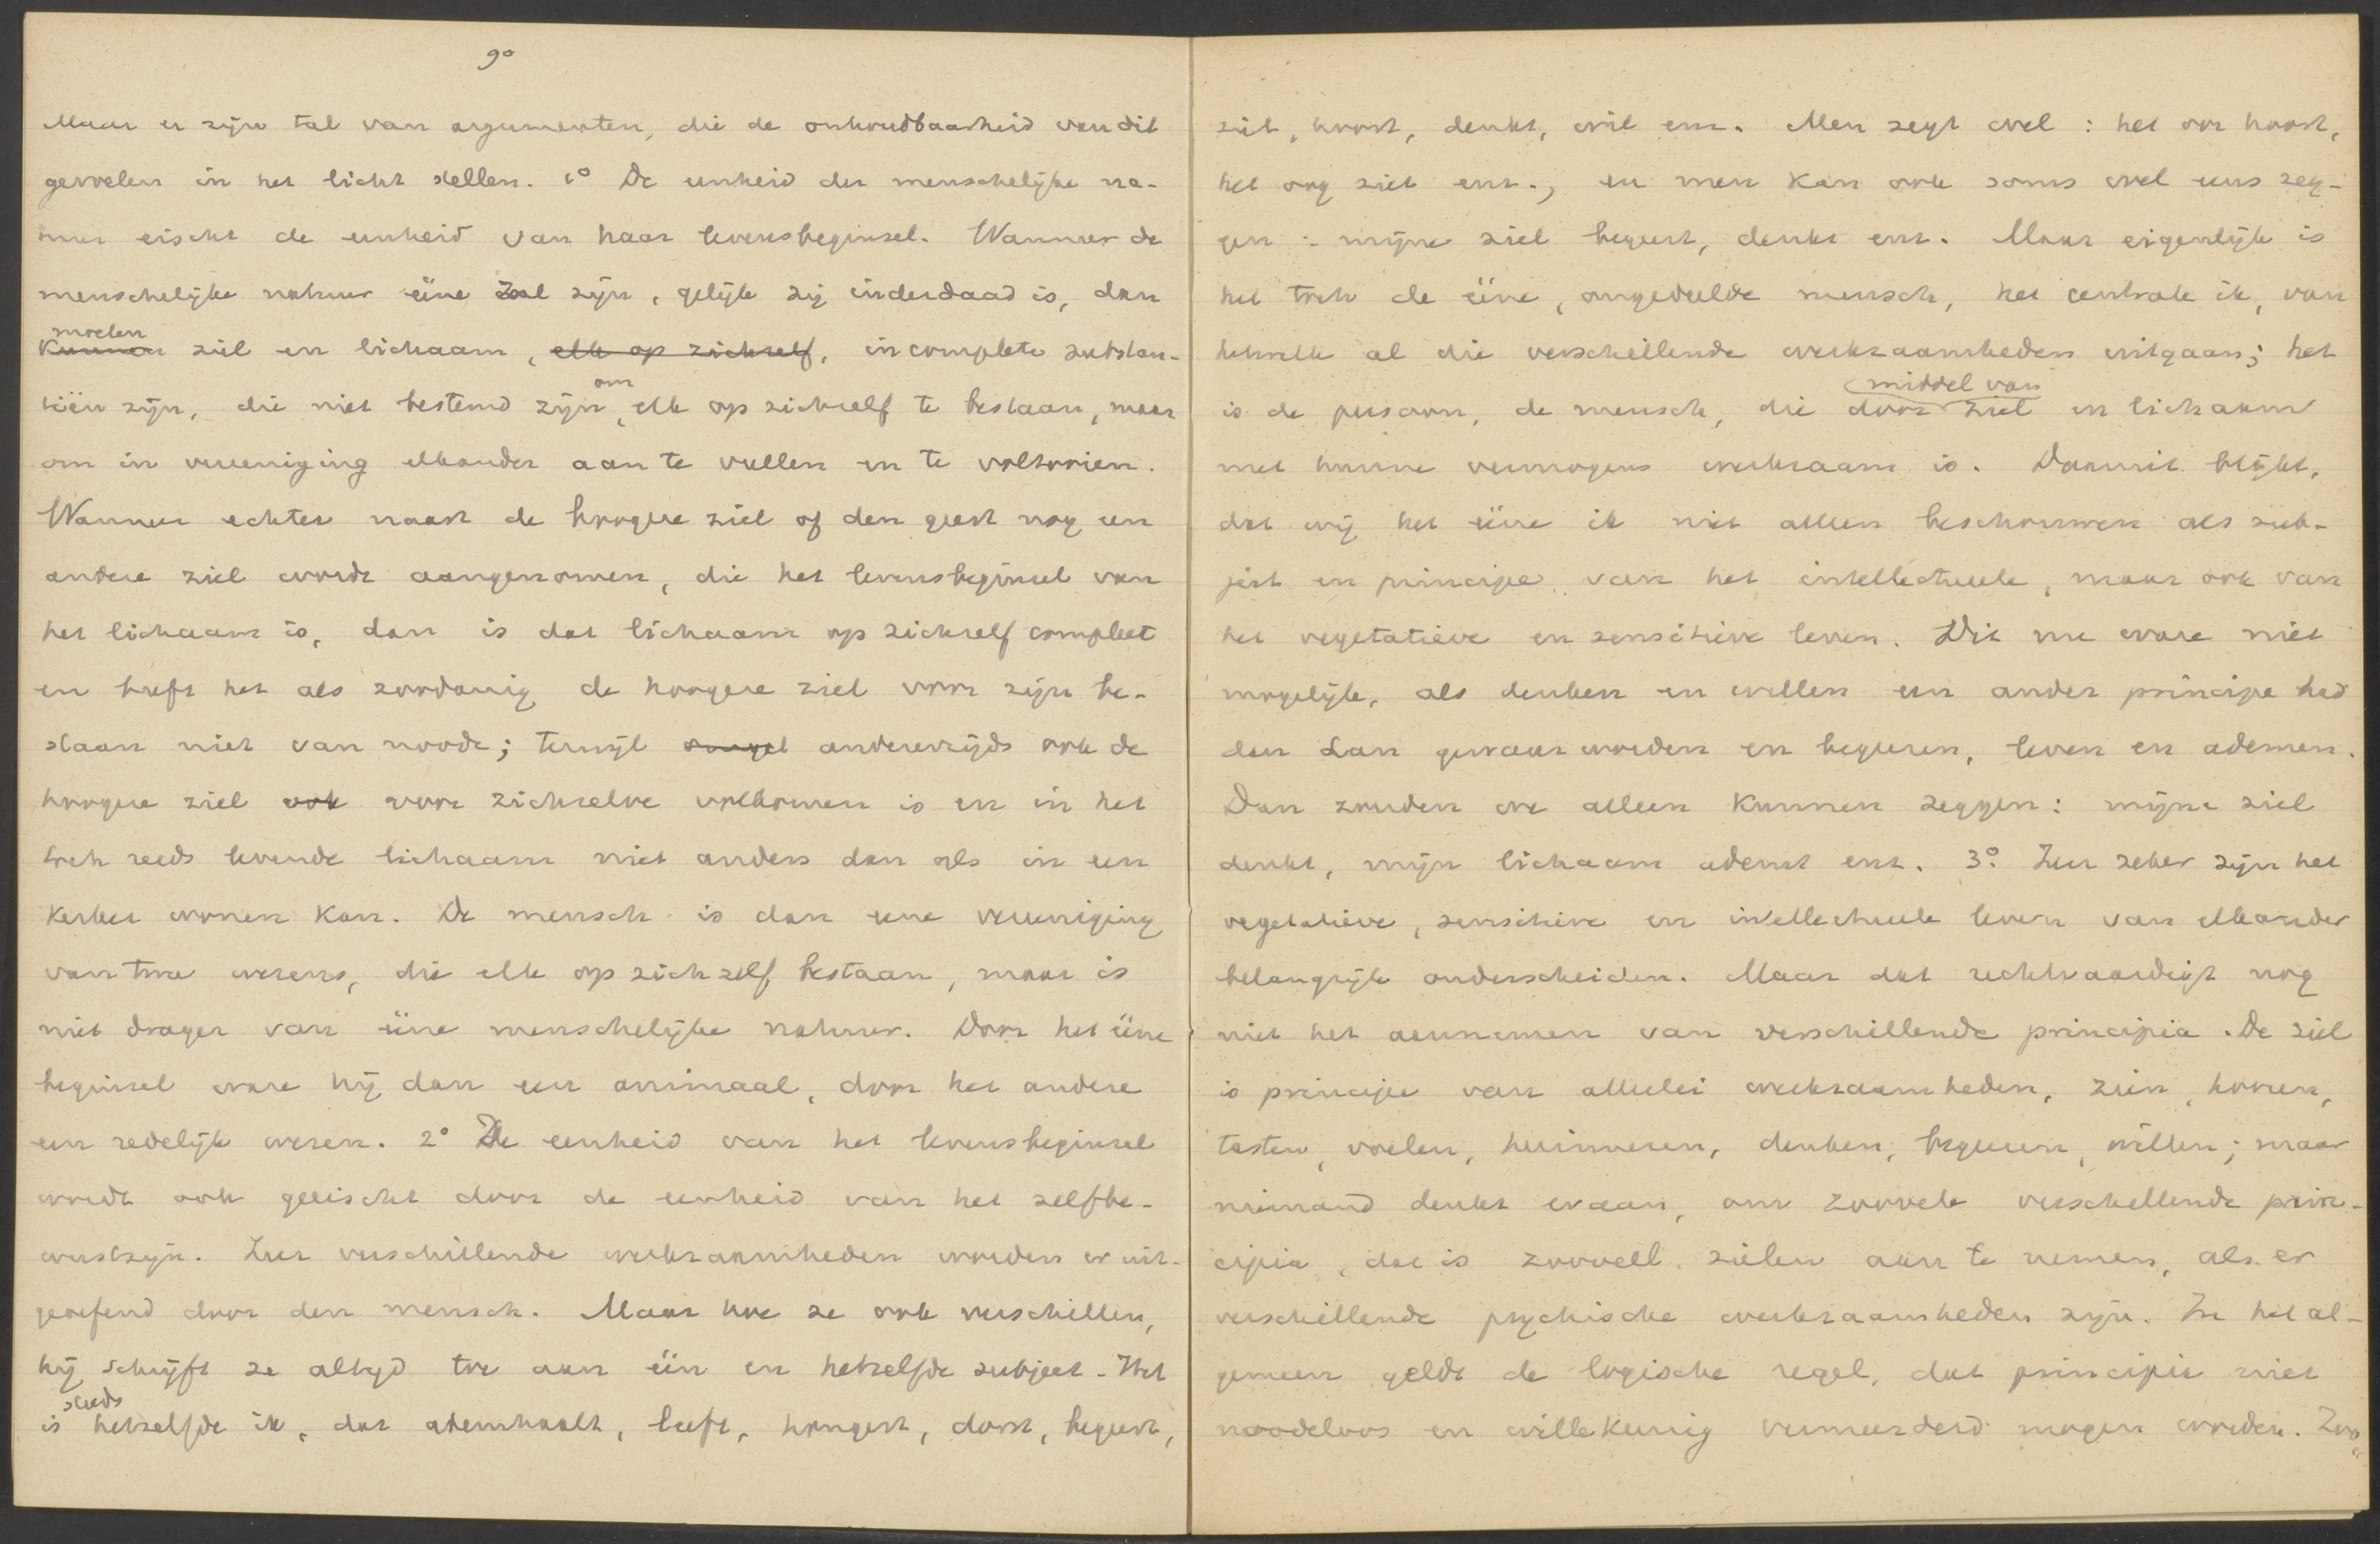 90
Maar er zijn tal van argumenten, die de onhoudbaarheid van dit
gevoelen in het licht stellen. 1° De eenheid der menschelijke na-
tuur eischt de eenheid van haar levensbeginsel. Wanneer de
menschelijke natuur ééne zal zijn, gelijk zij inderdaad is, dan
moeten
kunnen ziel en lichaam, elk op zichzelf, incomplete substan-
tiën zijn, die niet bestemd zijn om elk op zichzelf te bestaan, maar
om in vereeniging elkander aan te vullen en te voltooien.
Wanneer echter naast de hoogere ziel of den geest nog een
andere ziel wordt aangenomen, die het levensbeginsel van
het lichaam is, dan is dat lichaam op zichzelf compleet
en heeft het als zoodanig de hoogere ziel voor zijn be-
staan niet van noode; terwijl anderzijds ook de
hoogere ziel ook voor zichzelve volkomen is en in het
toch reeds levende lichaam niet anders dan als in een
kerker wonen kan. De mensch is dan eene vereeniging
van twee wezens, die elk op zich zelf bestaan, maar is
niet drager van ééne menschelijke natuur. Door het ééne
beginsel ware hij dan een animaal, door het andere
een redelijk wezen. 2° De eenheid van het levensbeginsel
wordt ook geëischt door de eenheid van het zelfbe-
wustzijn. Zeer verschillende werkzaamheden worden er uit-
geoefend door den mensch. Maar hoe ze ook verschillen,
hij schrijft ze altijd toe aan één en hetzelfde subject. Het
is steeds hetzelfde ik, dat ademhaalt, leeft, hongert, dorst, begeert,
ziet, hoort, denkt, wil enz. Men zegt wel: het oor hoort,
het oog ziet enz., en men kan ook soms wel eens zeg-
gen: mijne ziel begeert, denkt enz. Maar eigenlijk is
het toch de ééne, ongedeelde mensch, het centrale ik, van
hetwelk al die verschillende werkzaamheden uitgaan; het
is de persoon, de mensch, die door middel van ziel en lichaam
met hunne vermogens werkzaam is. Daaruit blijkt,
dat wij het ééne ik niet alleen beschouwen als sub-
ject en principe van het intellectueele, maar ook van
het vegetatieve en sensitieve leven. Dit nu ware niet
mogelijk, als denken en willen een ander principe had
den dan gewaar worden en begeeren, leven en ademen.
Dan zouden we alleen kunnen zeggen: mijne ziel
denkt, mijn lichaam ademt enz. 3°. Zeer zeker zijn het
vegetatieve, sensitieve en intellectueele leven van elkander
belangrijk onderscheiden. Maar dat rechtvaardigt nog
niet het aannemen van verschillende principia. De ziel
is principe van allerlei werkzaamheden, zien, hooren,
tasten, voelen, herinneren, denken, begeeren, willen; maar
niemand denkt eraan, om zoovele verschillende prin-
cipia, dat is zooveel zielen aan te nemen, als er
verschillende psychische werkzaamheden zijn. In het al-
gemeen geldt de logische regel, dat principia niet
noodeloos en willekeurig vermeerderd mogen worden. Zoo